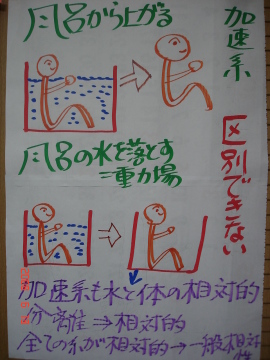 風呂から上がる
加速系
区別できない
風呂の水を落とす
重力場
加速系も水と体の相対的
分離性⇒相対的
全ての系が相対的→一般相対性